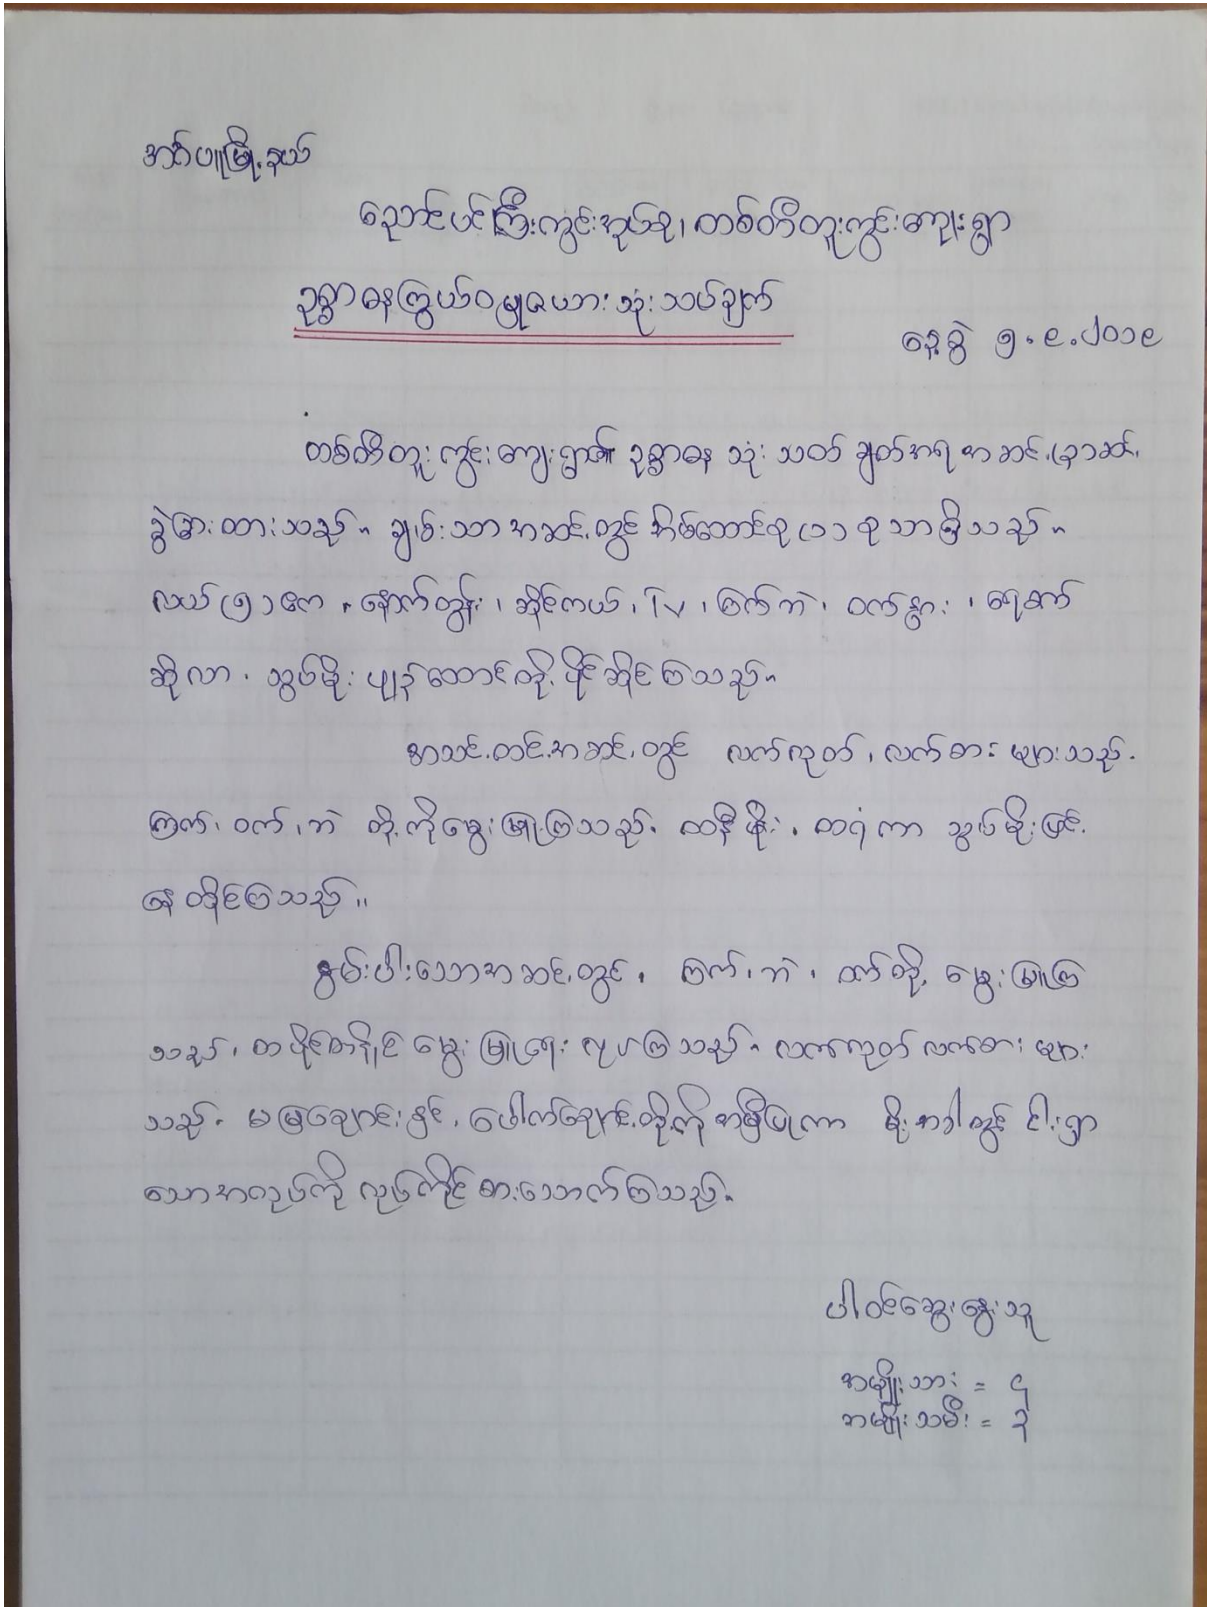 အင်္ဂပူမြို့နယ်
ညောင်ပင်ကြီးကွင်းအုပ်စု၊ တစ်တီတူးကွင်းကျေးရွာ
ဥစ္စာဓနကြွယ်ဝမှုဇယားသုံးသပ်ချက်
နေ့စွဲ ၅.၉.၂၀၁၉
တစ်တီတူးကွင်းကျေးရွာ၏ ဥစ္စာဓန သုံးသတ်ချတ်အရ အဆင့်(၃)ဆင့်
ခွဲခြားထားသည်။ ချမ်းသာအဆင့်တွင် အိမ်ထောင်စု(၁)စုသာရှိသည်။
လယ်(၅)ဧက၊ နောက်တွန်း၊ ဆိုင်ကယ်၊ TV၊ ကြက်ဘဲ၊ ဝက်နွား၊ ရေစက်
ဆိုလာ၊ သွပ်မိုး ပျဉ်ထောင်တို့ ပိုင်ဆိုင်ကြသည်။
အသင့်တင့်အဆင့်တွင် လက်လုတ်၊ လက်စား များသည်.
ကြက်၊ ဝက်၊ ဘဲ တို့ကိုမွေးမြူကြသည်. ထနီမိုး၊ ထရံကာ သွပ်မိုးဖြင့်
နေထိုင်ကြသည်။
နွမ်းပါးသောအဆင့်တွင်၊ ကြက်၊ ဘဲ၊ ဝက်တို့ မွေးမြူကြ
သည်၊ တပိုင်တနိုင် မွေးမြူရေး လုပ်ကြသည်။ လက်လုတ်လက်စား များ
သည်. မမြချောင်းနှင့် ပေါက်ချောင်းတို့ကိုအမှီပြုကာ မိုးအခါတွင် ငါးရှာ
သောအလုပ်ကို လုပ်ကိုင်စားသောက်ကြသည်။
ပါဝင်ဆွေးနွေးသူ
အမျိုးသား = ၄
အမျိုးသမီး = ၃